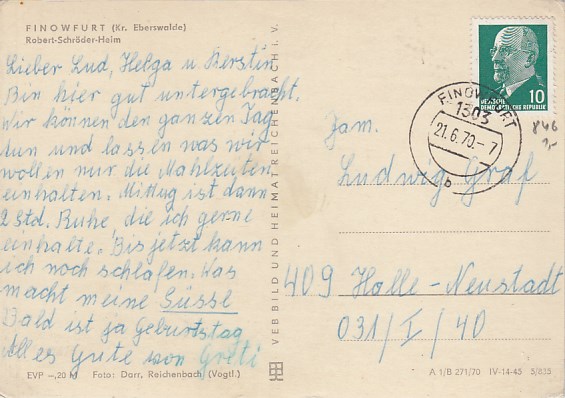 FINOWFURT (Kr. Eberswalde)
Robert-Schröder-Heim
Lieber Lud, Helga u. Kerstin
Bin hier gut untergebracht.
Wir können den ganzen Tag
tun und lassen was wir
wollen nur die Mahlzeiten
einhalten. Mittag ist dann
2 Std. Ruhe, die ich gerne
einhalte. Bis jetzt kann
ich noch schlafen. Was
macht meine Süsse
Bald ist ja Geburtstag
Alles Gute von Greti
EVP –,20 M Foto: Darr, Reichenbach (Vogtl.)
VEB BILD UND HEIMAT REICHENBACH I. V.
DEUTSCHE
DEMOKRATISCHE REPUBLIK
10
FINOWFURT
1303
21.6.70.-7
b
846
Fam.
Ludwig Graf
409 Halle-Neustadt
031/I/40
A 1/B 271/70 IV-14-45 5/835